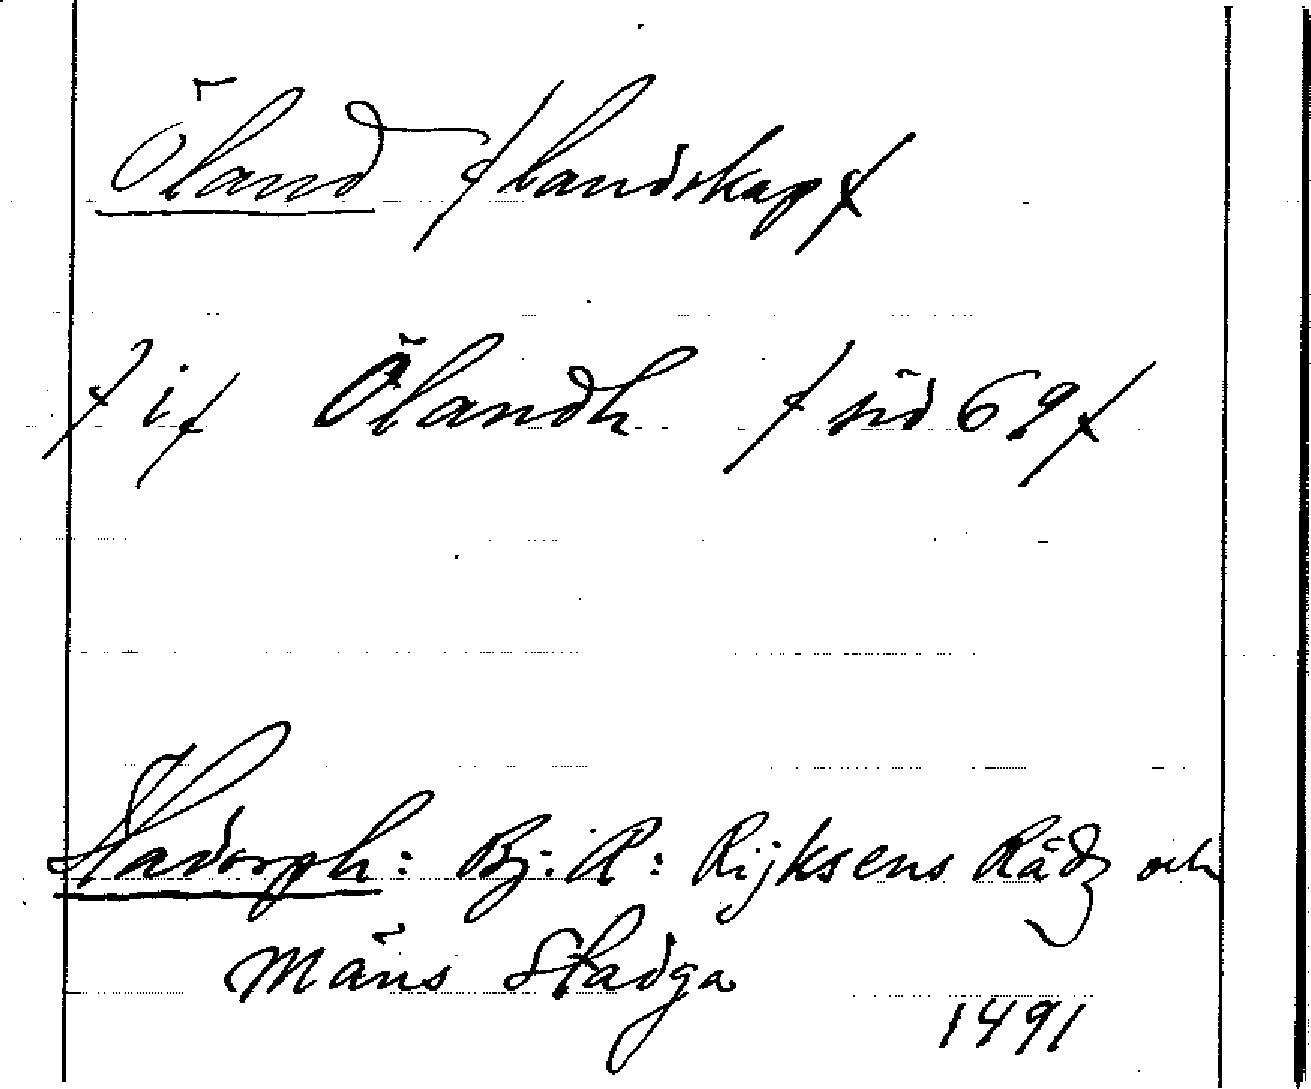 Öland /landskap/
/i/ Ölandh /sid 69/
Hadorph: Bj. R: Rijksens Rådz och
Mäns Stadga
1491